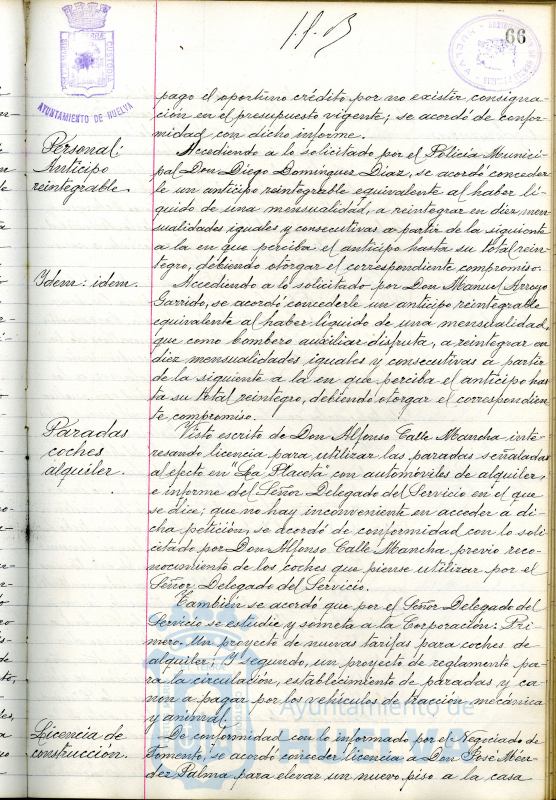 66
AYUNTAMIENTO DE HUELVA
pago el oportuno crédito por no existir consigna-
ción en el presupuesto vigente; se acordó de confor-
midad con dicho informe.
Personal:
Anticipo
reintegrable.
Accediendo a lo solicitado por el Policía Munici-
pal Don Diego Dominguez Diaz, se acordó conceder
le un anticipo reintegrable equivalente al haber lí-
quido de una mensualidad, a reintegrar en diez men-
sualidades iguales y consecutivas a partir de la siguiente
a la en que perciba el anticipo hasta su total rein-
tegro, debiendo otorgar el correspondiente compromiso.
Idem: idem.
Accediendo a lo solicitado por Don Manuel Arroyo
Garrido, se acordó concederle un anticipo reintegrable
equivalente al haber líquido de una mensualidad,
que como bombero auxiliar disfruta, a reintegrar en
diez mensualidades iguales y consecutivas a partir
de la siguiente a la en que perciba el anticipo has
ta su total reintegro, debiendo otorgar el correspondien
te compromiso.
Paradas
coches
alquiler.
Visto escrito de Don Alfonso Calle Mancha inte-
resando licencia para utilizar las paradas señaladas
al efecto en "La Placeta" con automóviles de alquiler,
e informe del Señor Delegado del Servicio en el que
se dice; que no hay inconveniente en acceder a di-
cha petición, se acordó de conformidad con lo soli-
citado por Don Alfonso Calle Mancha previo reco-
nocimiento de los coches que piense utilizar por el
Señor Delegado del Servicio.
También se acordó que por el Señor Delegado del
Servicio se estudie y someta a la Corporación: Pri
mero. Un proyecto de nuevas tarifas para coches de
alquiler; Y segundo, un proyecto de reglamento pa-
ra la circulación, establecimiento de paradas y ca-
non a pagar por los vehículos de tracción mecánica
y animal.
Licencia de
construcción.
De conformidad con lo informado por el Negociado de
Fomento, se acordó conceder licencia a Don José Mén-
dez Palma para elevar un nuevo piso a la casa
Ayuntamiento de
HUELVA